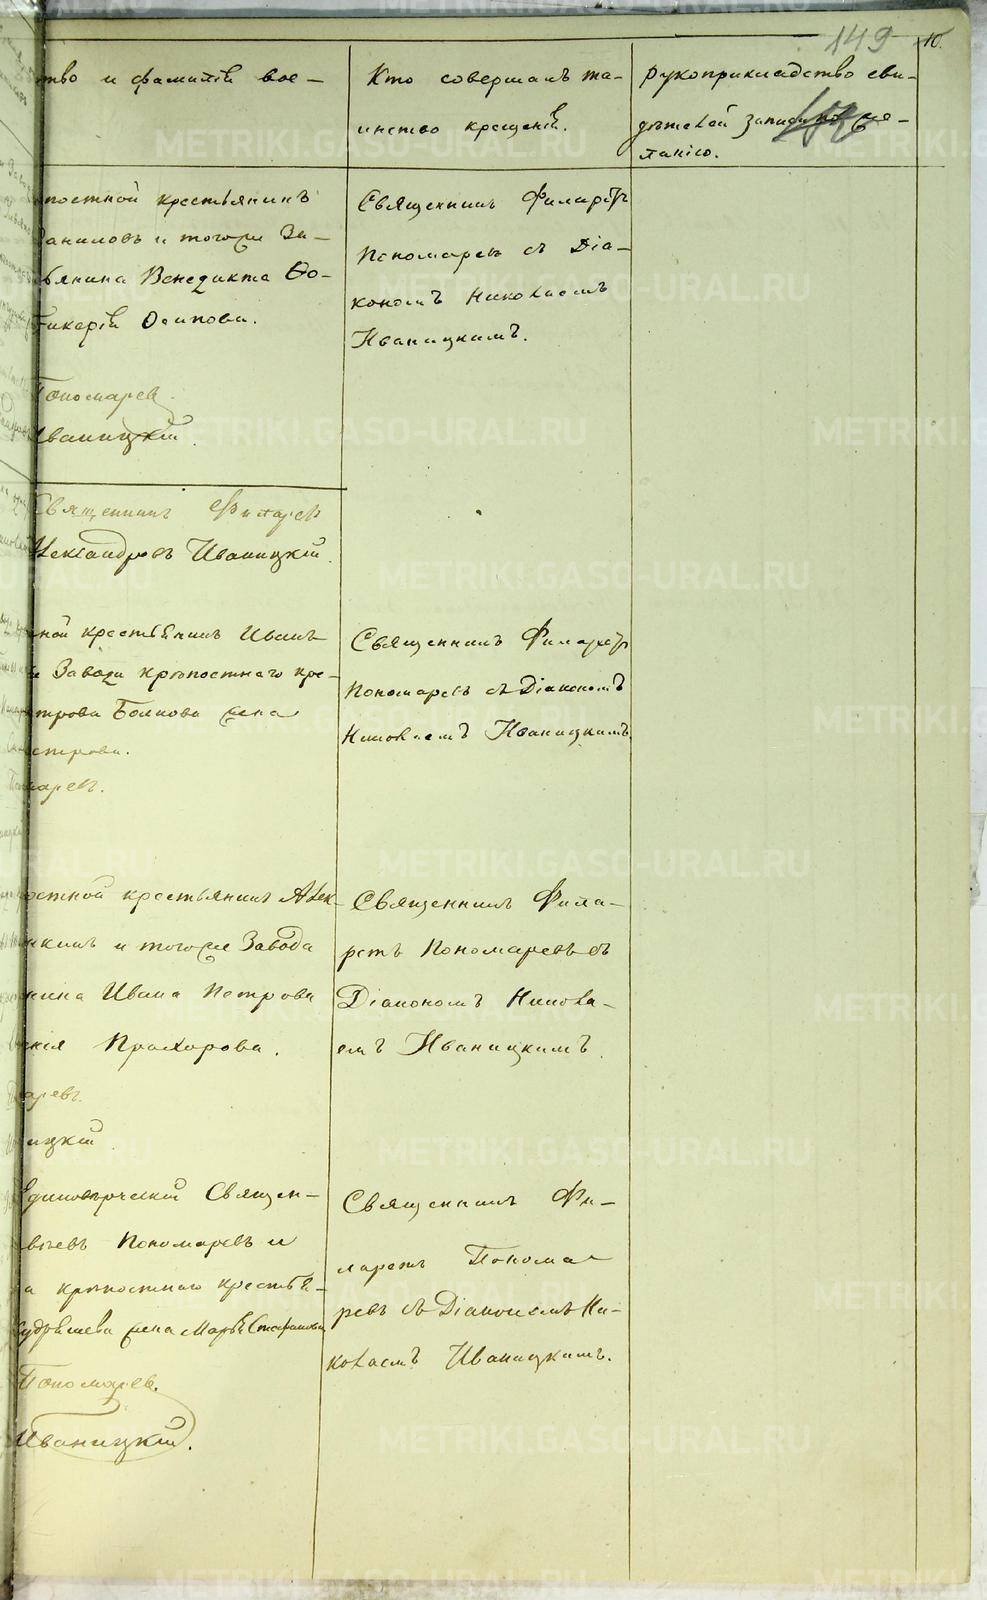 149
10.
ство и фамилія вос-
Кто совершалъ та-
инство крещенія.
Рукоприкладство сви-
дѣтелей записи по же-
ланію.
постной крестьянинъ
Даниловъ и тогоже За-
ьянина Венедикта Ѳо-
Гликерія Осипова.
Пономаревъ
Иваницкій.
Священникъ Филаретъ
Пономаревъ съ Діа-
кономъ Николаемъ
Иваницкимъ.
Священникъ Филаретъ
Александровъ Иваницкій.
ной крестьянинъ Иванъ
Завода крѣпостнаго кре-
етрова Боикова жена
етрова.
марев.
Священникъ Филаретъ
Пономаревъ съ Діакономъ
Николаемъ Иваницкимъ.
остной крестьянинъ Алек-
нкинъ и тогоже Завода
янина Ивана Петрова
Прохорова.
аревъ.
ицкій
Священникъ Фила-
ретъ Пономаревъ съ
Діакономъ Никола-
емъ Иваницкимъ.
Единовѣрческій Священ-
Пономаревъ и
а крѣпостнаго крестья-
Кудрявцева жена Марья Стефанова
Пономарев.
Иваницкій.
Священникъ Фи-
ларетъ Понома
ревъ съ Діакономъ Ни-
колаемъ Иваницкимъ.
METRIKI.GASO-URAL.RU